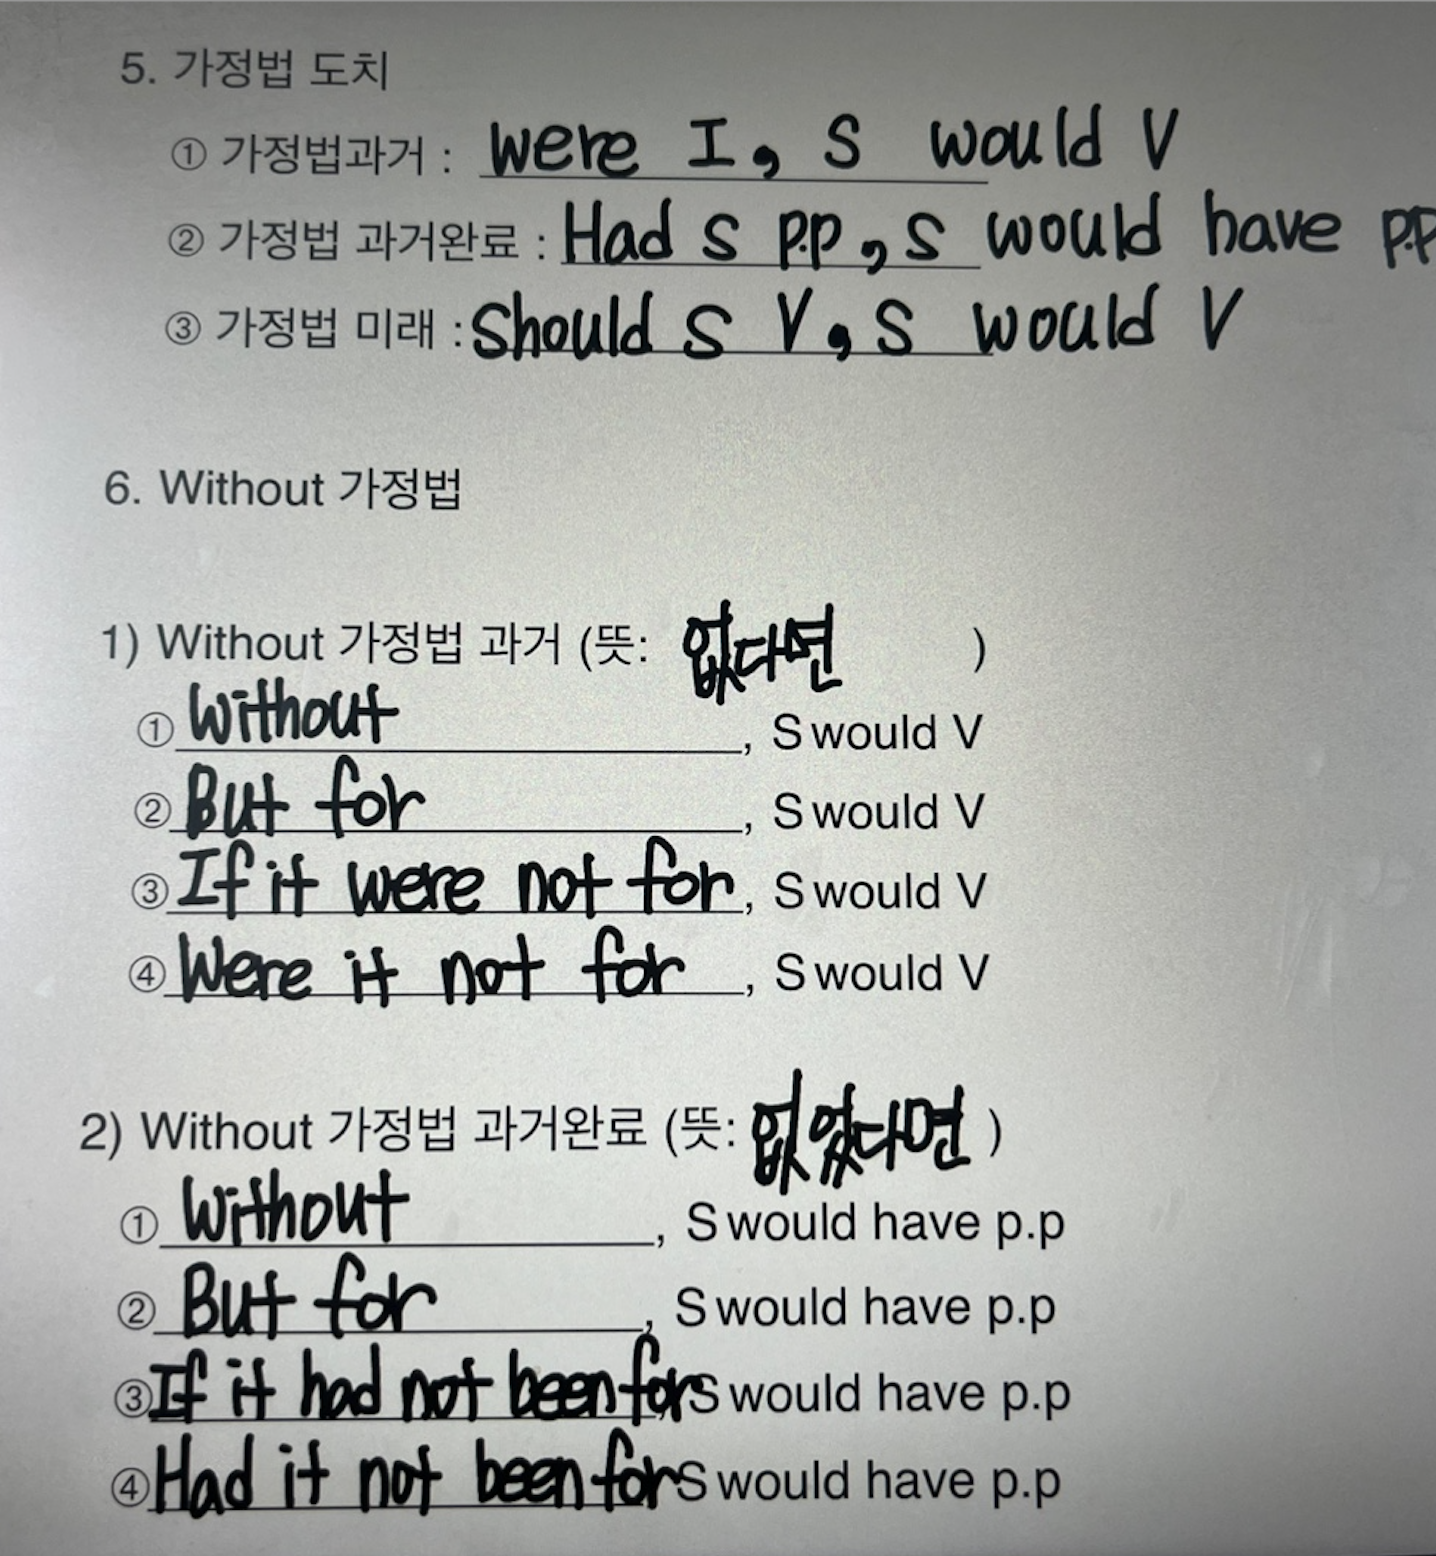 5. 가정법 도치
① 가정법과거 : Were I, S would V
② 가정법 과거완료 : Had S p.p, S would have p.p
③ 가정법 미래 : Should S V, S would V
6. Without 가정법
1) Without 가정법 과거 (뜻: 없다면 )
① Without , S would V
② But for , S would V
③ If it were not for , S would V
④ Were it not for , S would V
2) Without 가정법 과거완료 (뜻: 없었다면 )
① Without , S would have p.p
② But for , S would have p.p
③ If it had not been for, S would have p.p
④ Had it not been for S would have p.p